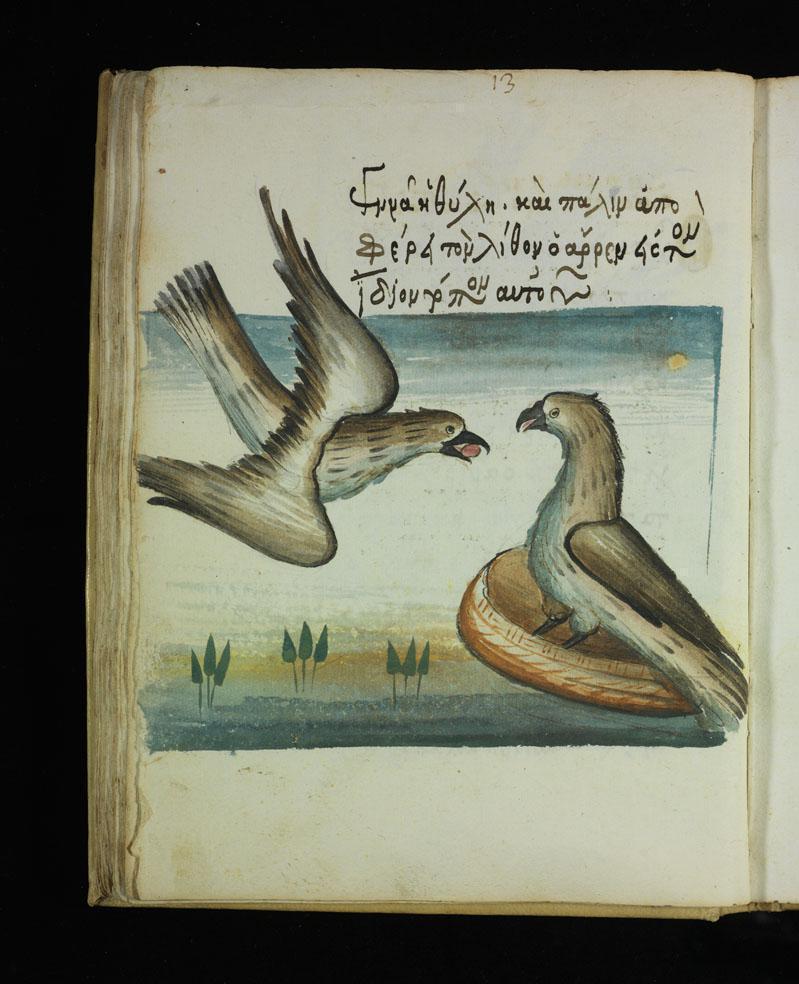 13
Γεννᾷ ἡ θύλη· καὶ πάλιν ἀπο
φέρει τὸν λίθον ὁ ἄρρεν εἰς τὸν
ἴδιον τόπον αὐτοῦ: